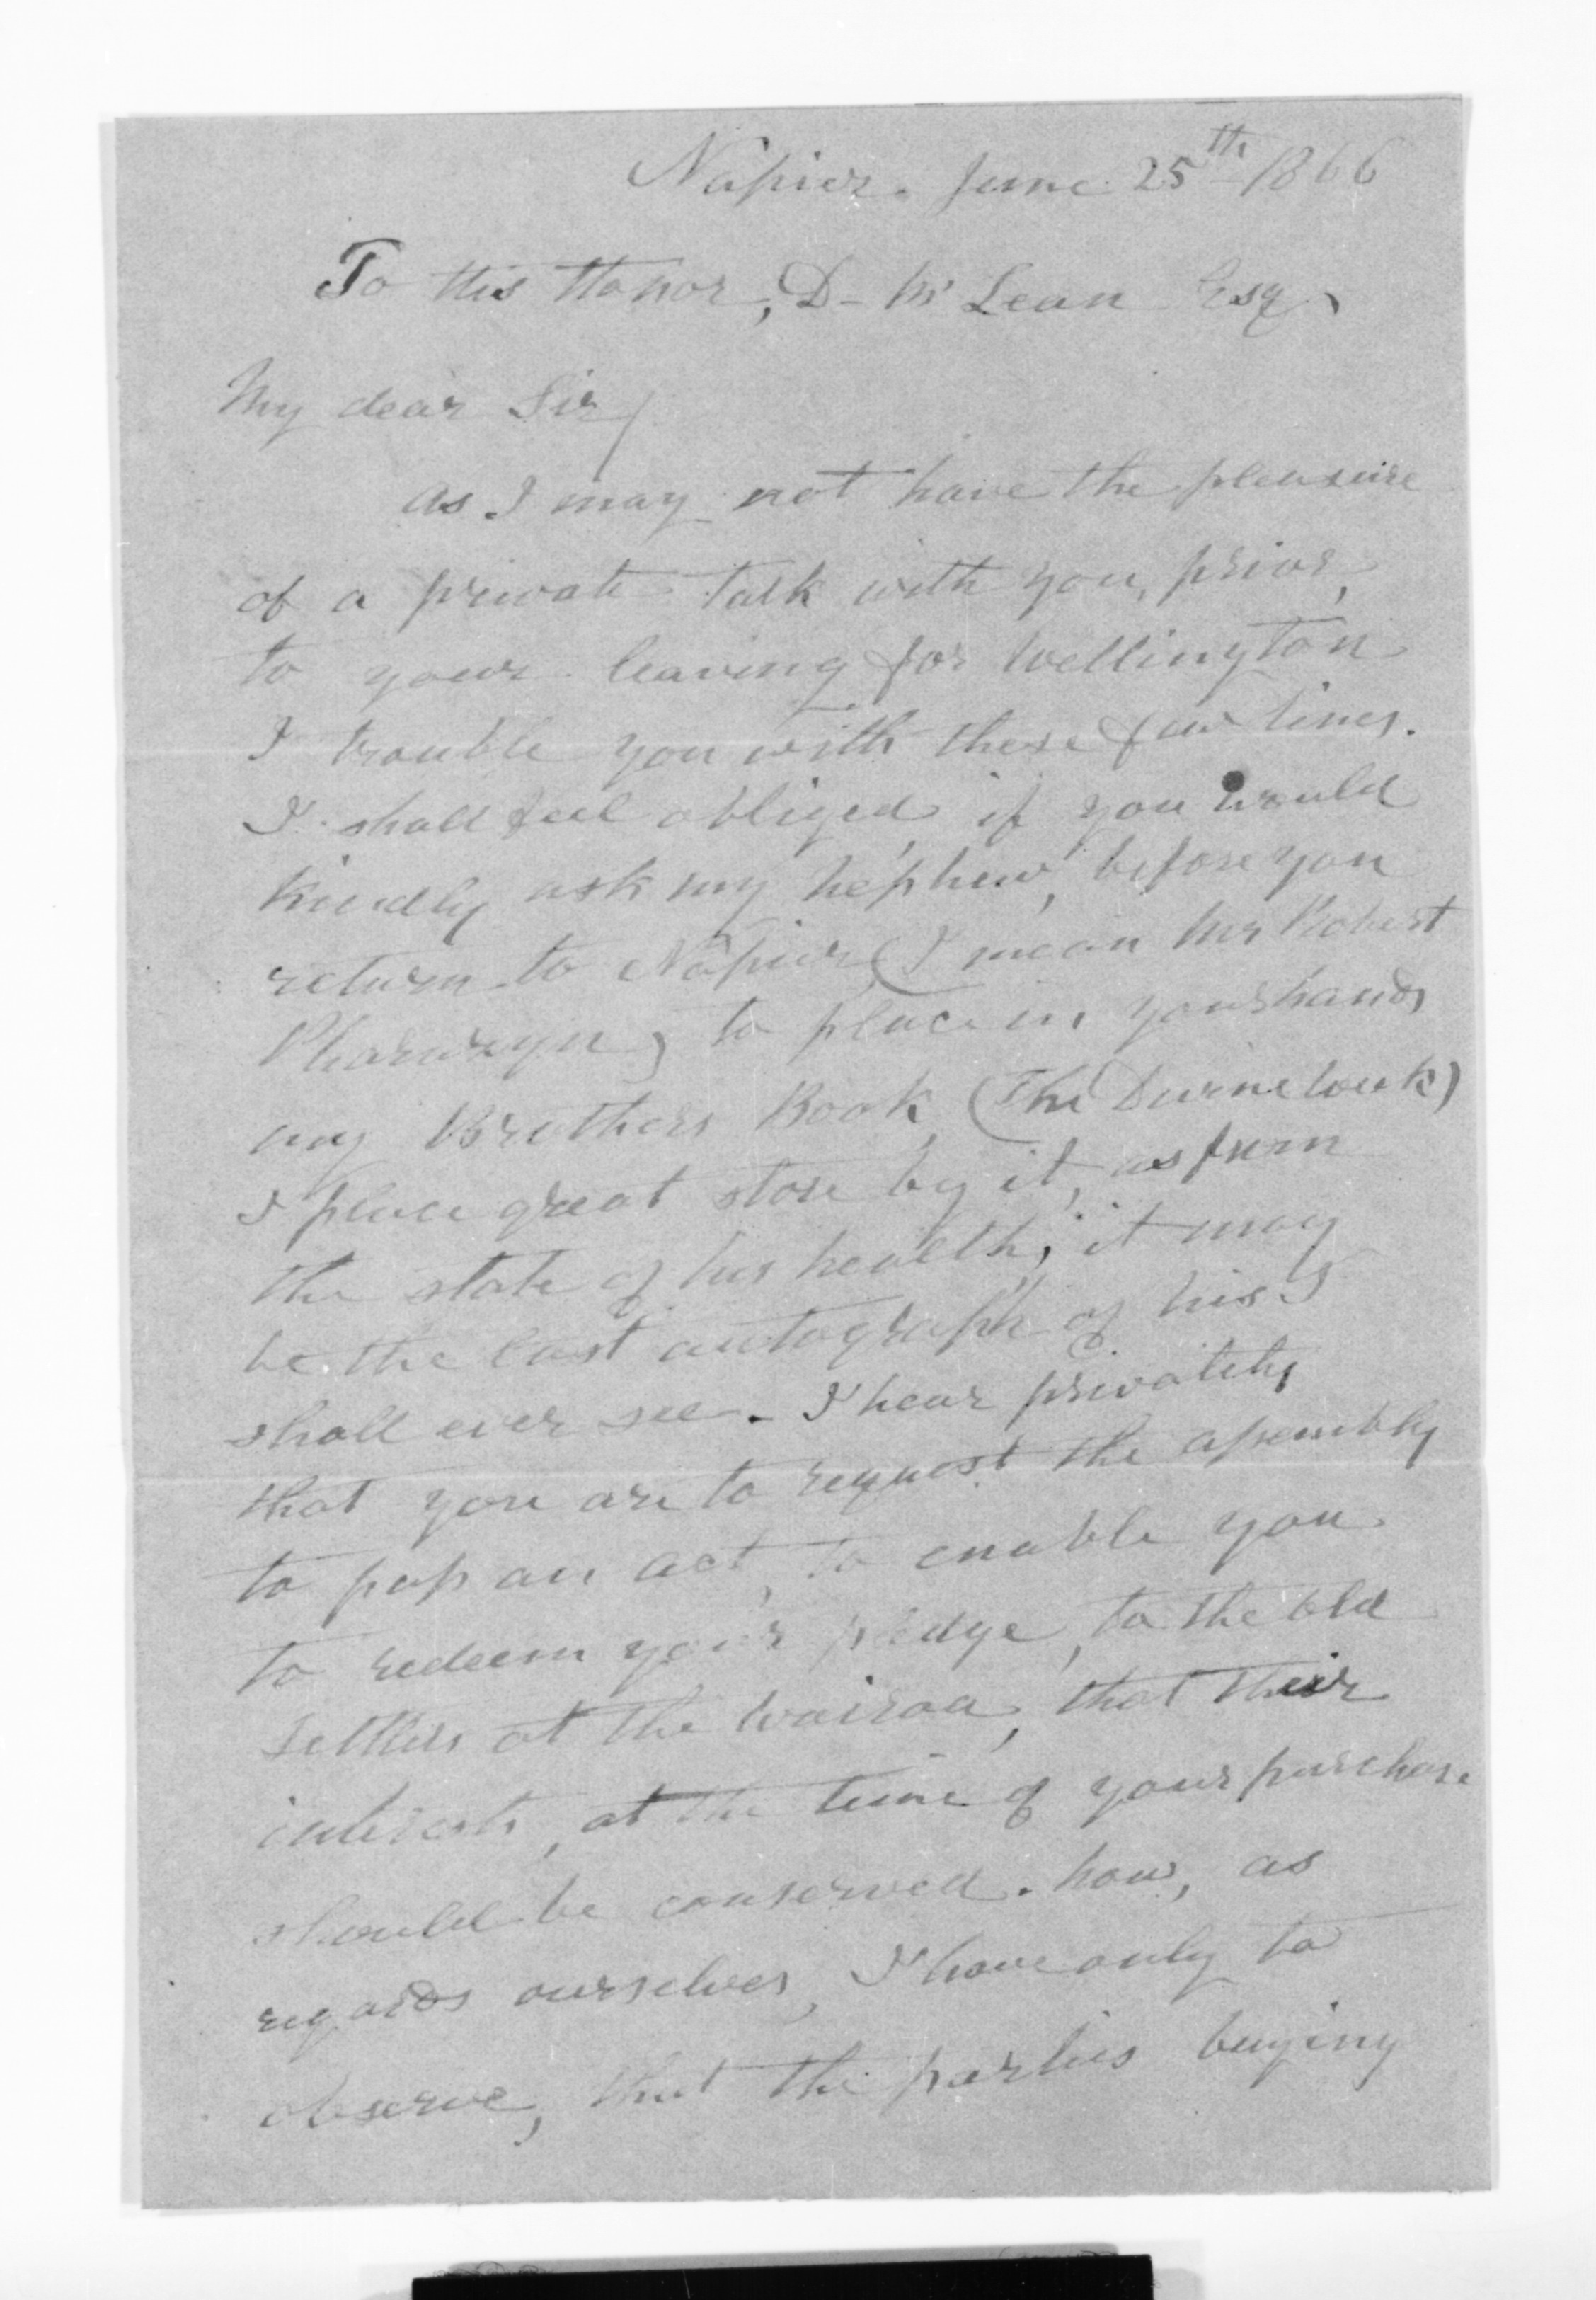 Napier. June 25th 1866
To His Honor, D- McLean Esq,
My dear Sir/
as I may not have the pleasure
of a private talk with you, prior,
to your leaving for Wellington
I trouble you with these few lines.
I shall feel obliged, if you would
kindly ask my nephew, before you
return to Napier, (I mean Mr Robert
Pharazyn) to place in your hands
my Brothers Book, (The Divine Week)
I place great store by it, as from
the state of his health, it may
be the last autograph of his I
shall ever see. I hear privately
that you are to request the assembly
to pass an act, to enable you
to redeem your pledge, to the old
settlers at the Wairoa, that their
interests, at the time of your purchase
should be conserved. now, as
regards ourselves, I have only to
observe, that the parties buying